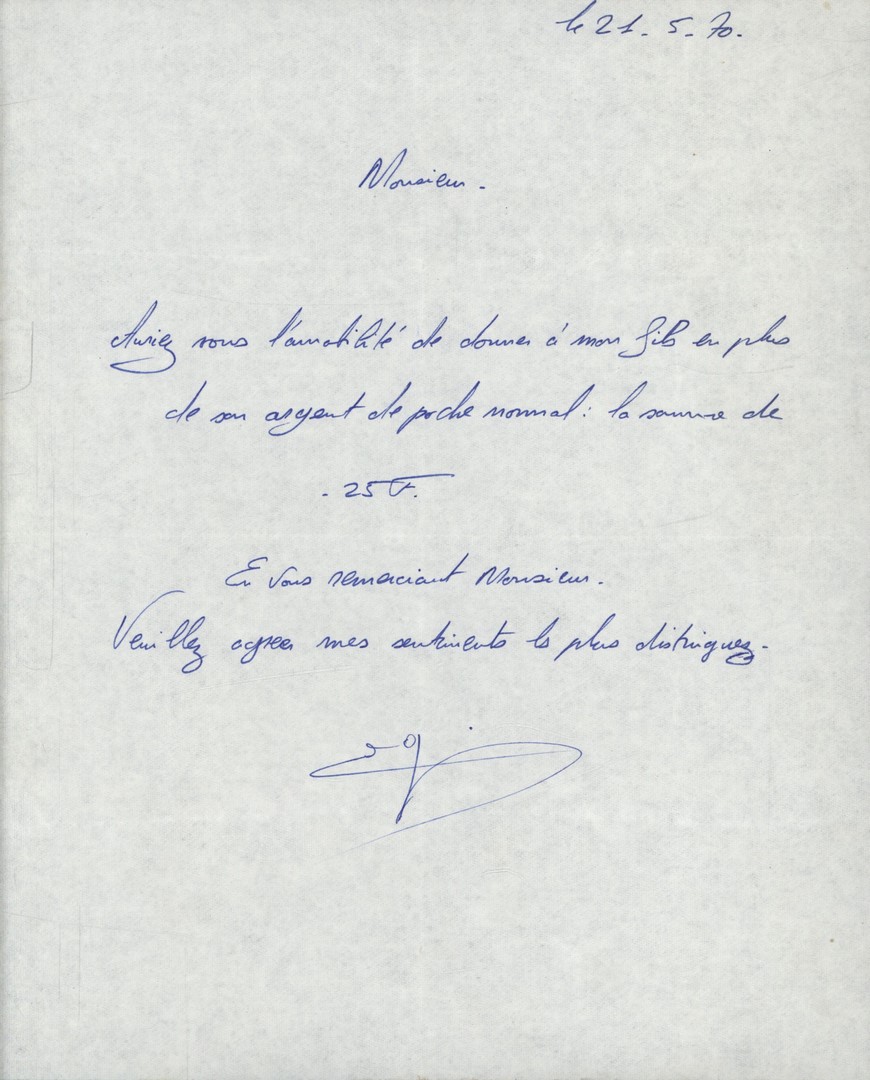 le 21. 5. 70.
Monsieur.
Auriez vous l'amabilité de donner à mon fils en plus
de son argent de poche normal : la somme de
. 25 F.
En vous remerciant Monsieur.
Veuillez agréer mes sentiments les plus distinguez.